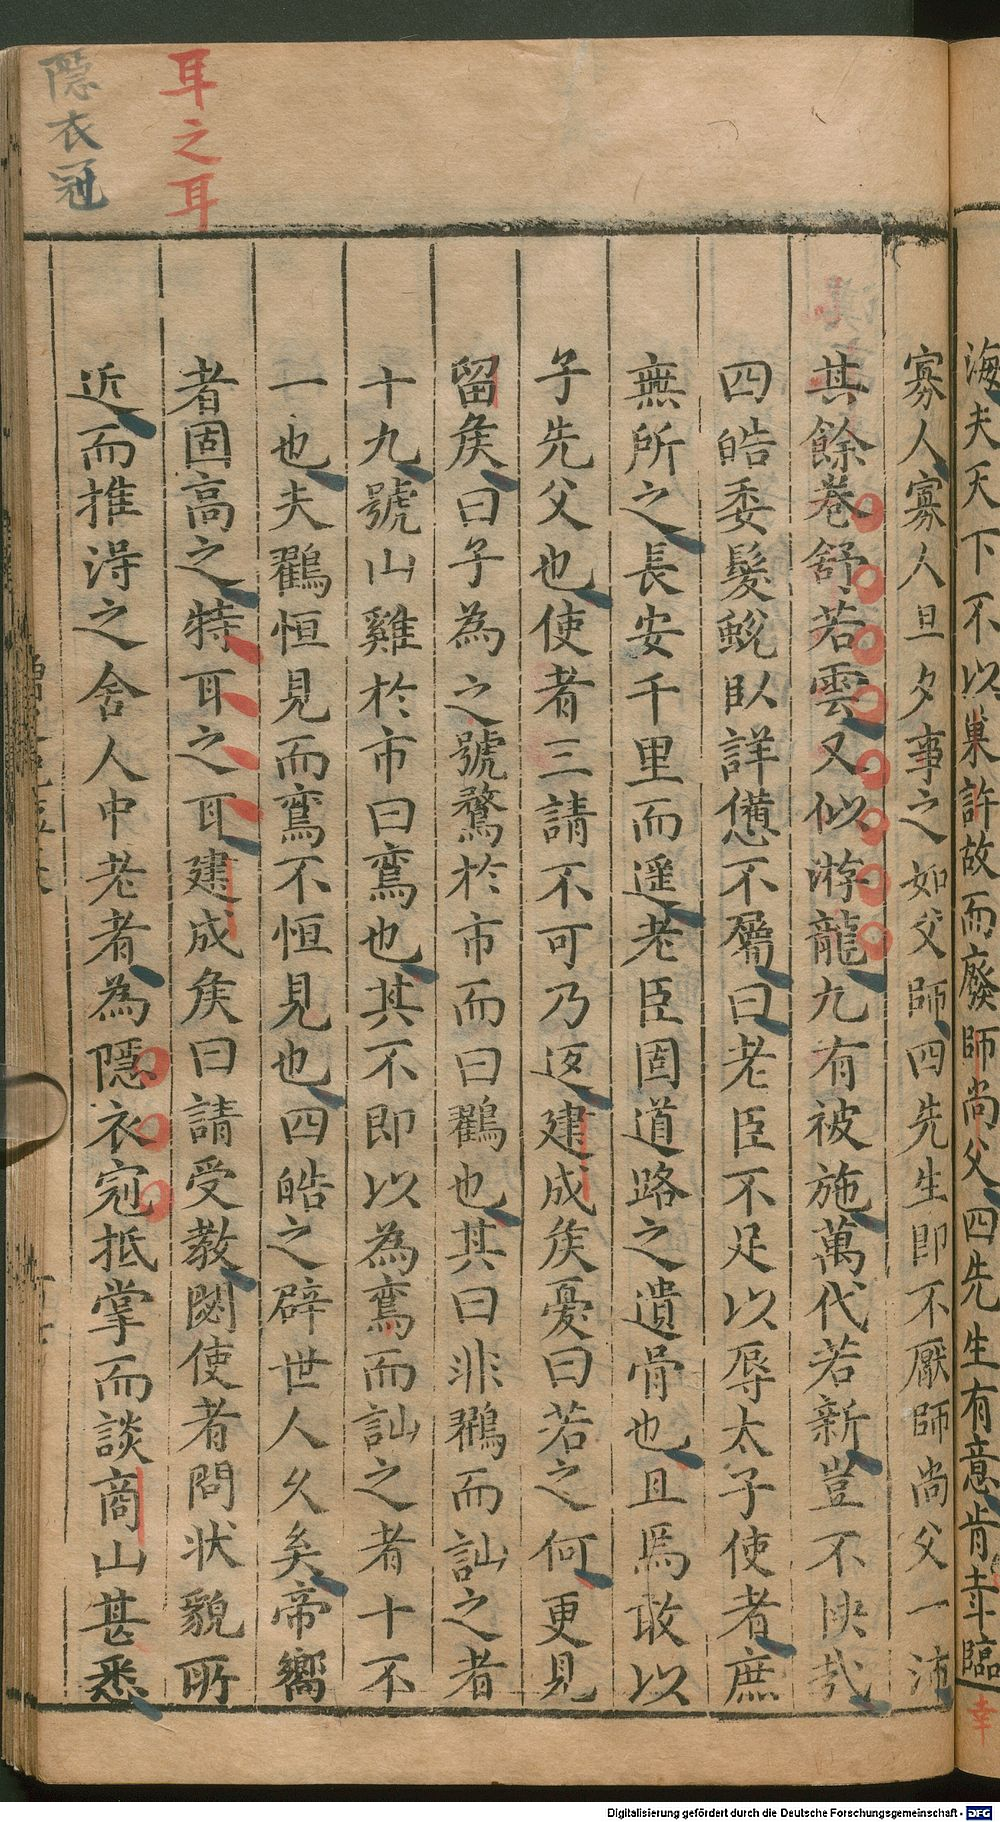 海夫天下不以巢許故而廢師尚父四先生有意肯
臨
幸
寡人寡人旦夕事之如父師四先生即不厭師尚父一沛
其餘卷舒若雲又似游龍九有被施萬代若新豈不快哉
四皓委髮蛻臥詳憊不屬曰老臣不足以辱太子使者庶
無所之長安千里而遥老臣固道路之遺骨也且焉敢以
子先父也使者三請不可乃返建成矦憂曰若之何更見
留矦曰子為之號鶩於市而曰鸛也其曰非鸛而訕之者
十九號山雞於市曰鸞也其不即以為鸞而訕之者十不
一也夫鸛恒見而鸞不恒見也四皓之辟世人久矣帝嚮
者固高之特耳之耳建成矦曰請受教閟使者問状貌所
近而推淂之舍人中老者為隱衣冠抵掌而談商山甚悉
耳之耳
隱衣冠
Digitalisierung gefördert durch die Deutsche Forschungsgemeinschaft - DFG